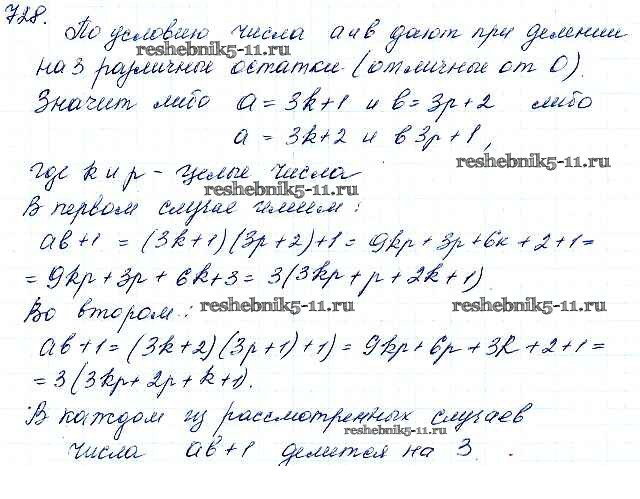 728. По условию числа a и в дают при делении
reshebnik5-11.ru
на 3 различные остатки (отличные от 0).
Значит либо a = 3k+1 и в = 3p+2 либо
a = 3k+2 и в 3p+1,
reshebnik5-11.ru
где k и p - целые числа
reshebnik5-11.ru
В первом случае имеем:
ab+1 = (3k+1)(3p+2)+1 = 9kp+3p+6k+2+1=
= 9kp+3p+6k+3 = 3(3kp+p+2k+1)
reshebnik5-11.ru reshebnik5-11.ru
Во втором:
ab+1 = (3k+2)(3p+1)+1) = 9kp+6p+3k+2+1=
= 3(3kp+2p+k+1).
В каждом из рассмотренных случаев
reshebnik5-11.ru
числа ab+1 делится на 3.